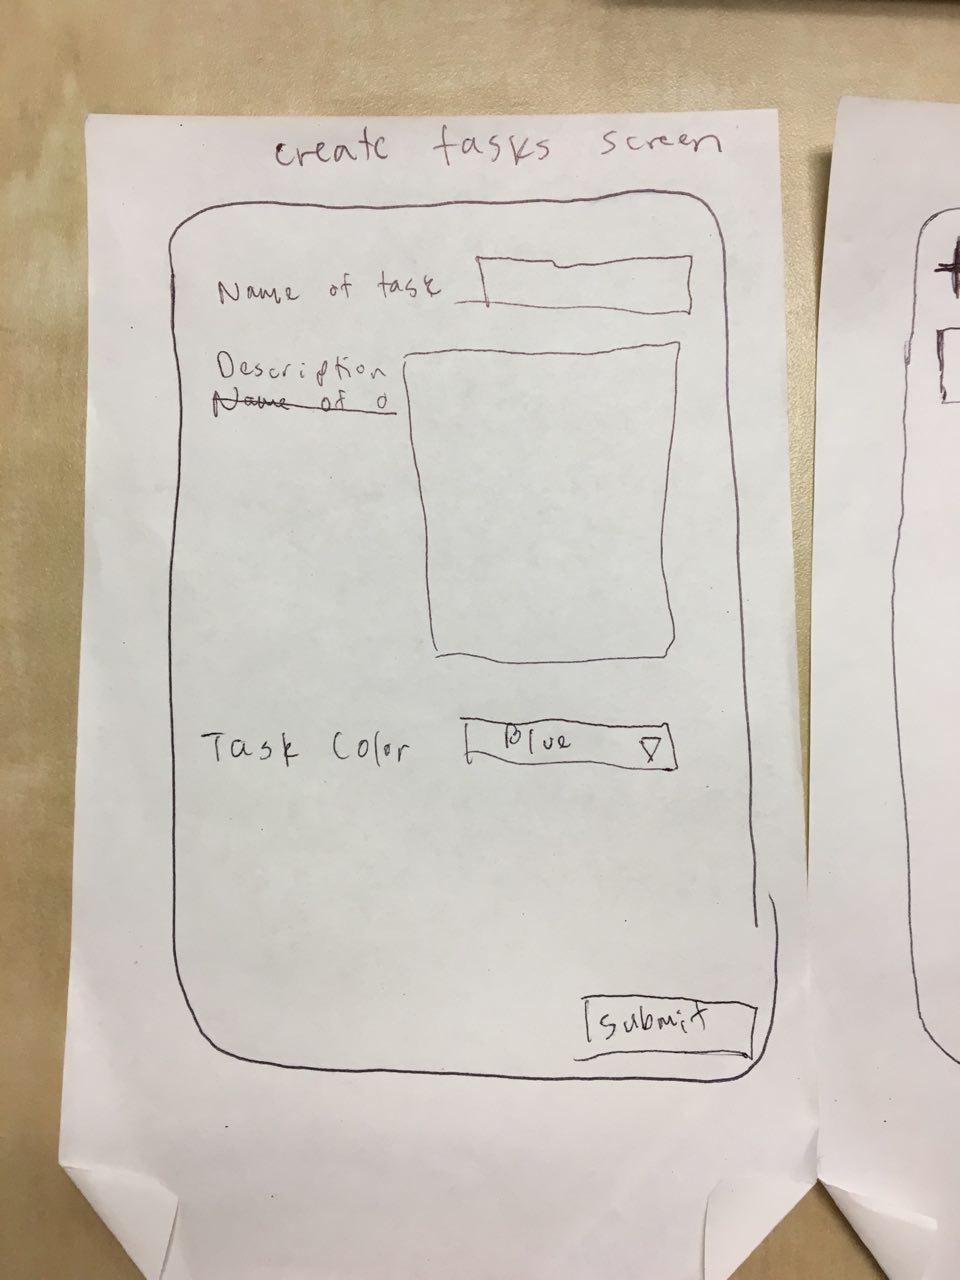 create tasks screen
Name of task
Description
Name of
Task Color
Blue
Submit